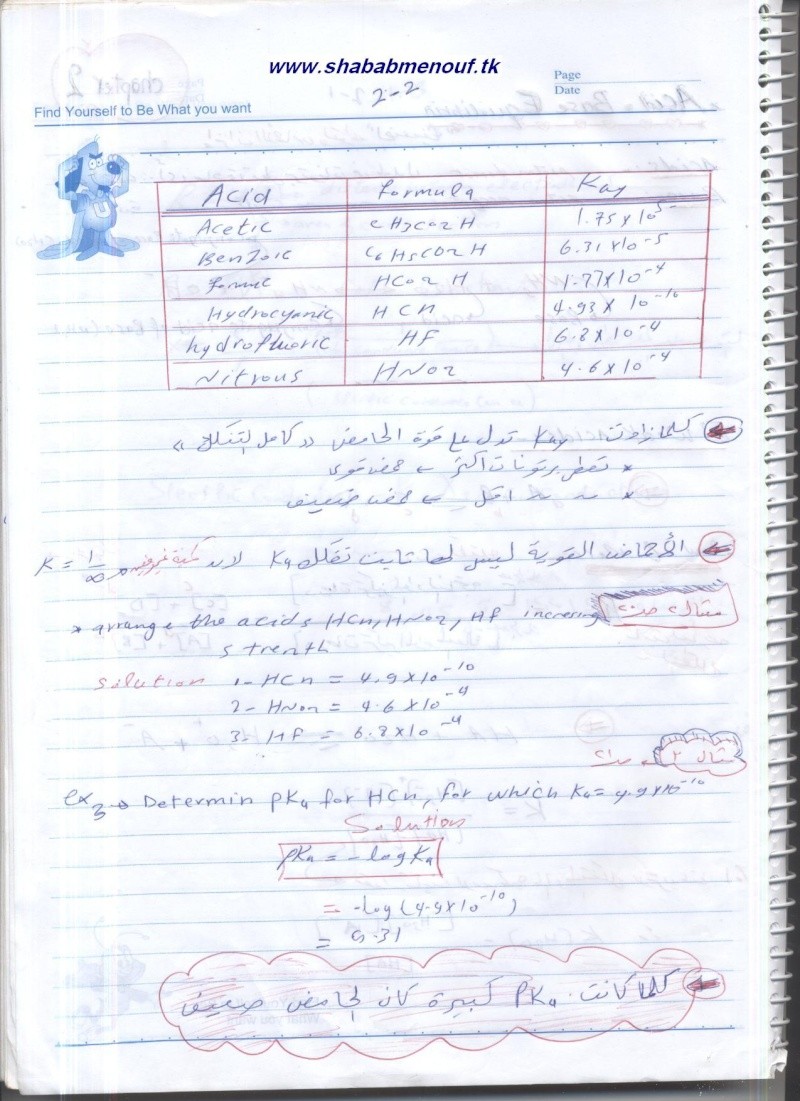 www.shababmenouf.tk
Page
Date
2-2
Find Yourself to Be What you want
Acid Formula Ka
Acetic CH3CO2H 1.75x10-5
Benzoic C6H5CO2H 6.31x10-5
Formic HCO2H 1.77x10-4
Hydrocyanic HCN 4.93x10-10
hydrofluoric HF 6.8x10-4
Nitrous HNO2 4.6x10-4
كلما زادت Ka تدل على قوة الحامض «كامل التفكك»
* تعطى بروتونات أكثر ← حمض قوى
* ~ ~ أقل ← حمض ضعيف
الأحماض القوية ليس لها ثابت تفكك Ka لأنه كمية غير معرفه K = 1/∞
* arrange the acids HCn, HNO2, HF incresing
strenth
solution 1- HCn = 4.9x10-10
2- HNO2 = 4.6x10-4
3- HF = 6.8x10-4
ex3 → Determin pKa for HCn, for which Ka = 4.9x10-10
Solution
pKa = -log Ka
= -log(4.9x10-10)
= 9.31
كلما كانت PKa كبيرة كان الحامض ضعيف